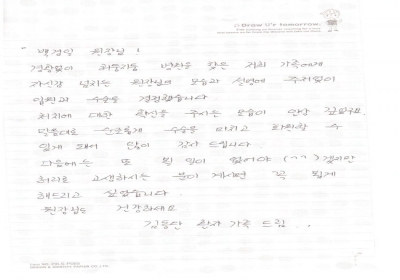 a Draw for tomorrow..
" 백경일 원장님!
경황없이 허둥지둥 병원을 찾은 저희 가족에게
자신감 넘치는 원장님의 모습과 설명에 주저없이
입원과 수술을 결정했습니다
처치에 대한 확신을 주시는 모습이
믿음대로 수술을 마치고 퇴원할 수
있게 되어 많이 감사 드립니다.
다음에는 또 뵐 일이 없어야 (ㄱㄱ) 겠지만
허리로 고생하시는 분이 계시면 꼭 뵙게
해드리고 싶습니다.
원장님도 건강하세요
환자 가족 드림...